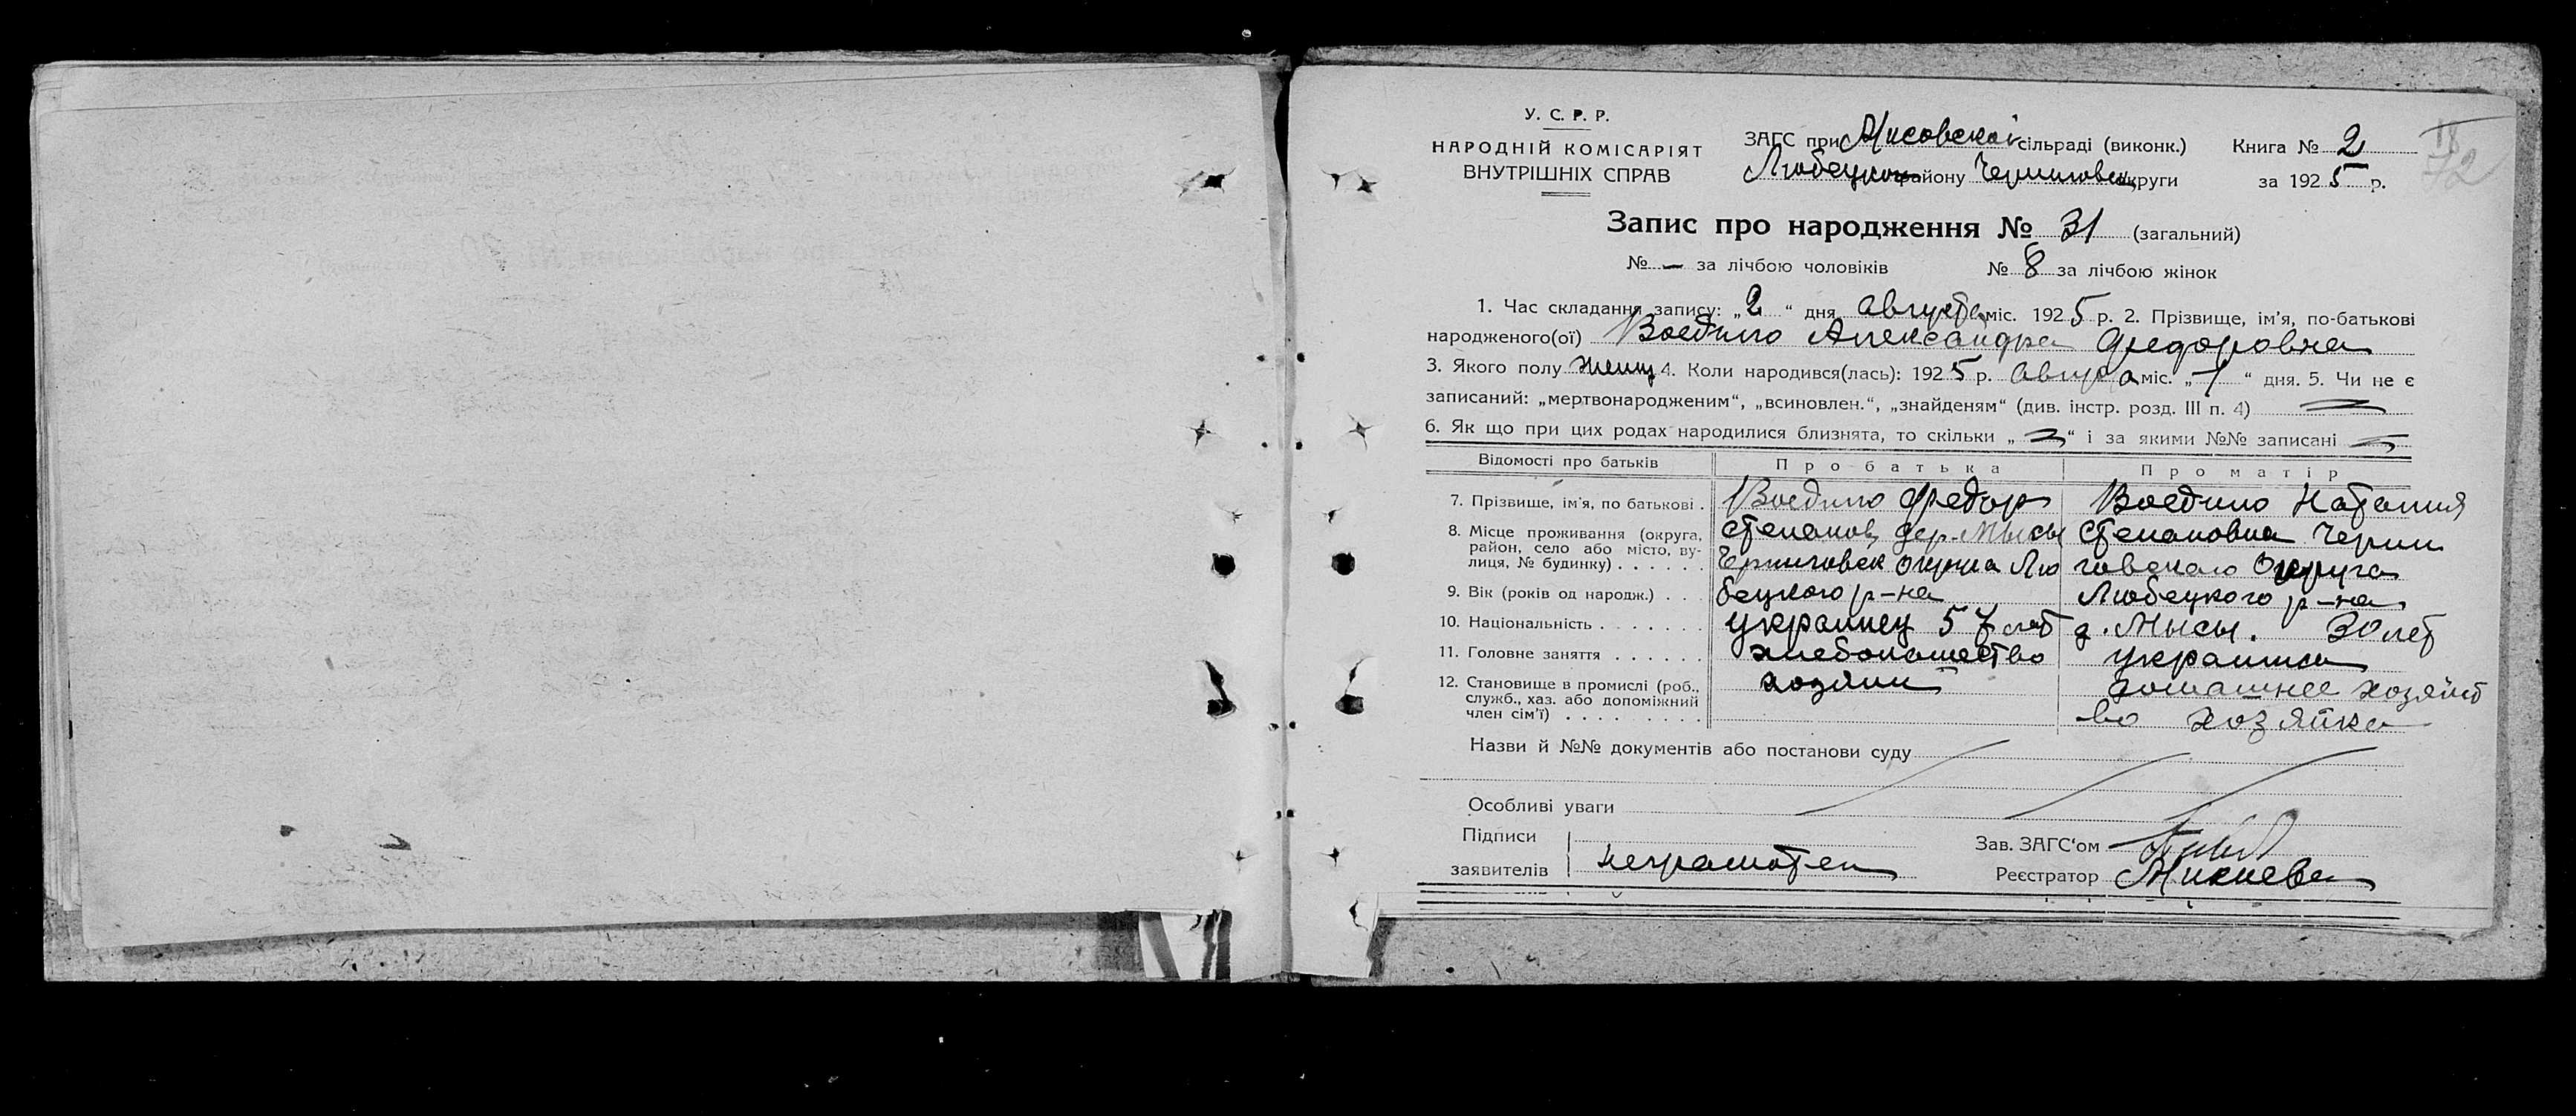 У. С. Р. Р.
НАРОДНІЙ КОМІСАРІЯТ
ВНУТРІШНІХ СПРАВ
ЗАГС при Мисовской сільраді (виконк.)
Любецкого району Черниговск округи
Книга № 2
за 1925 р.
Запис про народження № 31 (загальний)
№ – за лічбою чоловіків № 8 за лічбою жінок
1. Час складання запису: „2“ дня августа міс. 1925 р. 2. Прізвище, ім'я, по-батькові
народженого(ої) Воедило Александра Федоровна
3. Якого полу женщ 4. Коли народився(лась): 1925 р. августа міс. „1“ дня. 5. Чи не є
записаний: „мертвонародженим“, „всиновлен.“, „знайденям“ (див. інстр. розд. III п. 4)
6. Як що при цих родах народилися близнята, то скільки „ “ і за якими №№ записані
Відомості про батьків Про батька Про матір
7. Прізвище, ім'я, по батькові . Воедило Федор Воедило Наталия
8. Місце проживання (округа, район, село або місто, вулиця, № будинку) . . . . . . Степанов, дер. Мысы Степановна Черни
Черниговск округа Лю говского Округа
9. Вік (років од народж.) . . . бецкого р-на Любецкого р-на
10. Національність . . . . . . . украинец 57 лет д. Мысы. 30 лет
11. Головне заняття . . . . . . хлебопашество украинка
12. Становище в промислі (роб., служб., хаз. або допоміжний член сім'ї) . . . . . . . . . хозяин домашнее хозяйст
во хозяйка
Назви й №№ документів або постанови суду
Особливі уваги
Підписи
заявителів неграмотен
Зав. ЗАГС'ом
Реєстратор